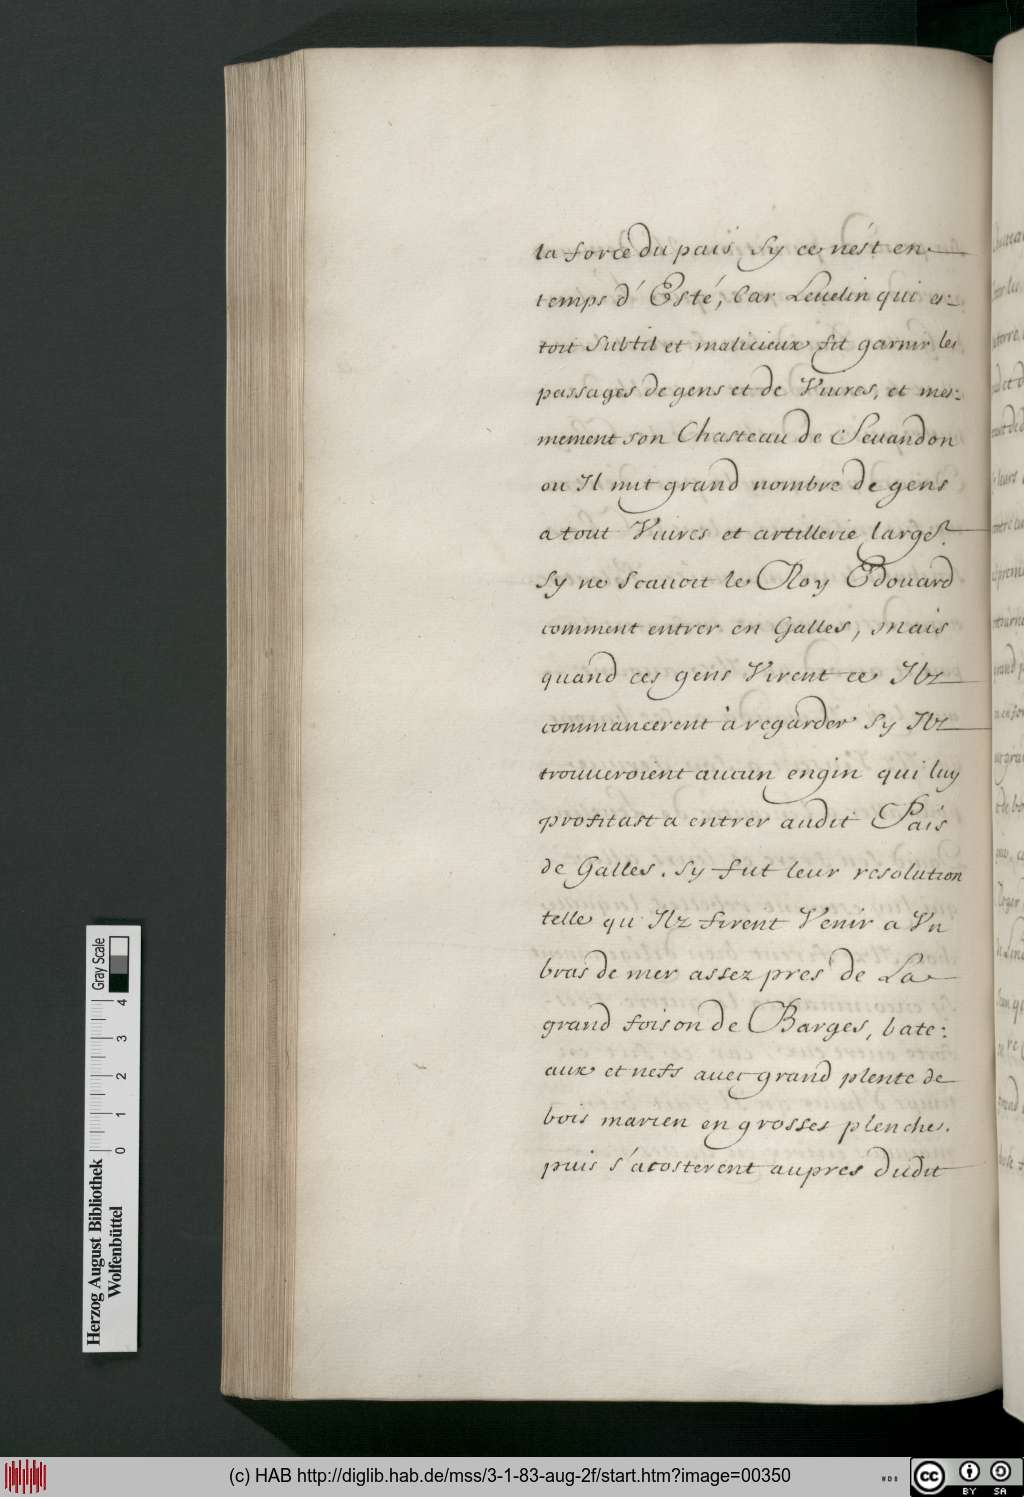 la force du pais Sy ce n'est en
temps d'Esté, Car Leuelin qui es-
toit Subtil et malicieux fit garnir les
passages de gens et de Viures, et mes-
mement son Chasteau de Seuandon
ou Il mit grand nombre de gens
a tout Viures et artillerie larges.
Sy ne scauoit le Roy Edouard
comment entrer en Galles, mais
quand ces gens Virent ce Ilz
commancerent à regarder Sy Ilz
trouueroient aucun engin qui luy
profitast a entrer audit Pais
de Galles. Sy fut leur resolution
telle qu Ilz firent Venir a Vn
bras de mer assez pres de La
grand foison de Barges, bate:
aux et nefs auec grand plente de
bois marien en grosses plenche.
puis s'acosterent aupres dudit
Herzog August Bibliothek
Wolfenbüttel
0 1 2 3 4
Gray Scale
(c) HAB http://diglib.hab.de/mss/3-1-83-aug-2f/start.htm?image=00350
WDB
CC BY SA